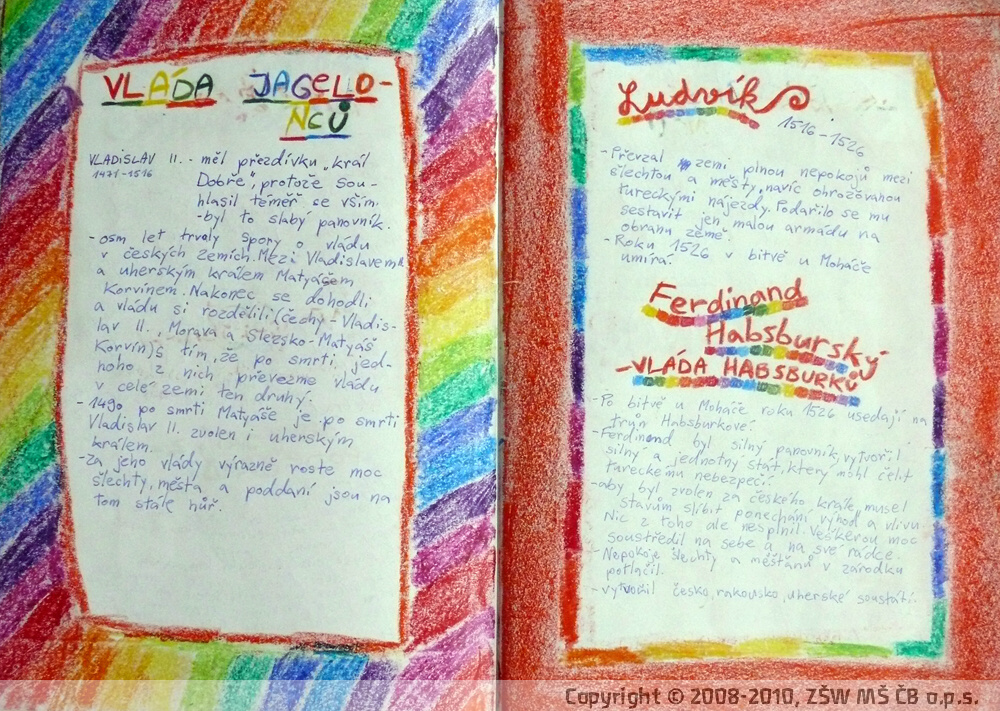 VLÁDA JAGELLO-
NCŮ
VLADISLAV II. - měl přezdívku „král
1471-1516
Dobře", protože sou-
hlasil téměř se vším.
-byl to slabý panovník.
-osm let trvaly spory o vládu
v českých zemích. Mezi Vladislavem
a uherským králem Matyášem
Korvínem. Nakonec se dohodli
a vládu si rozdělili (čechy-Vladis-
lav II., Morava a Slezsko-Matyáš
Korvín)s tím, že po smrti jed-
noho z nich převezme vládu
v celé zemi ten druhý.
-1490 po smrti Matyáše je po smrti
Vladislav II. zvolen i uherským
králem.
-Za jeho vlády výrazně roste moc
šlechty, města a poddaní jsou na
tom stále hůř.
Ludvík
1516-1526
-Převzal zemi plnou nepokojů mezi
šlechtou a městy, navíc ohrožovanou
tureckými nájezdy. Podařilo se mu
sestavit jen malou armádu na
obranu země.
-Roku 1526 v bitvě u Moháče
umírá.
Ferdinand
Habsburský
-VLÁDA HABSBURKŮ
-Po bitvě u Moháče roku 1526 usedají na
trůn Habsburkové.
-Ferdinand byl silný panovník, vytvořil
silný a jednotný stát, který mohl čelit
tureckému nebezpečí.
-aby byl zvolen za českého krále, musel
stavům slíbit ponechání výhod a vlivu.
Nic z toho ale nesplnil. Veškerou moc
soustředil na sebe a na své rádce.
-Nepokoje šlechty a měšťanů v zárodku
potlačil.
-vytvořil česko, rakousko, uherské soustátí.
Copyright © 2008-2010, ZŠW MŠ ČB o.p.s.